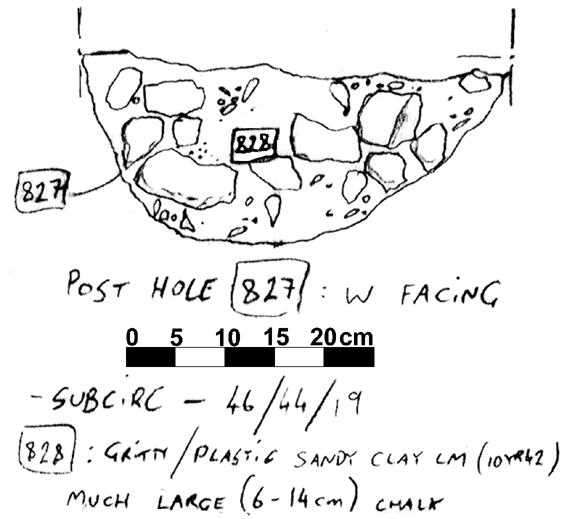 828
827
POST HOLE 827 : W FACING
0 5 10 15 20cm
- SUBCIRC - 46/44/19
828 : GRITTY/PLASTIC SANDY CLAY LM (10YR42)
MUCH LARGE (6-14cm) CHALK